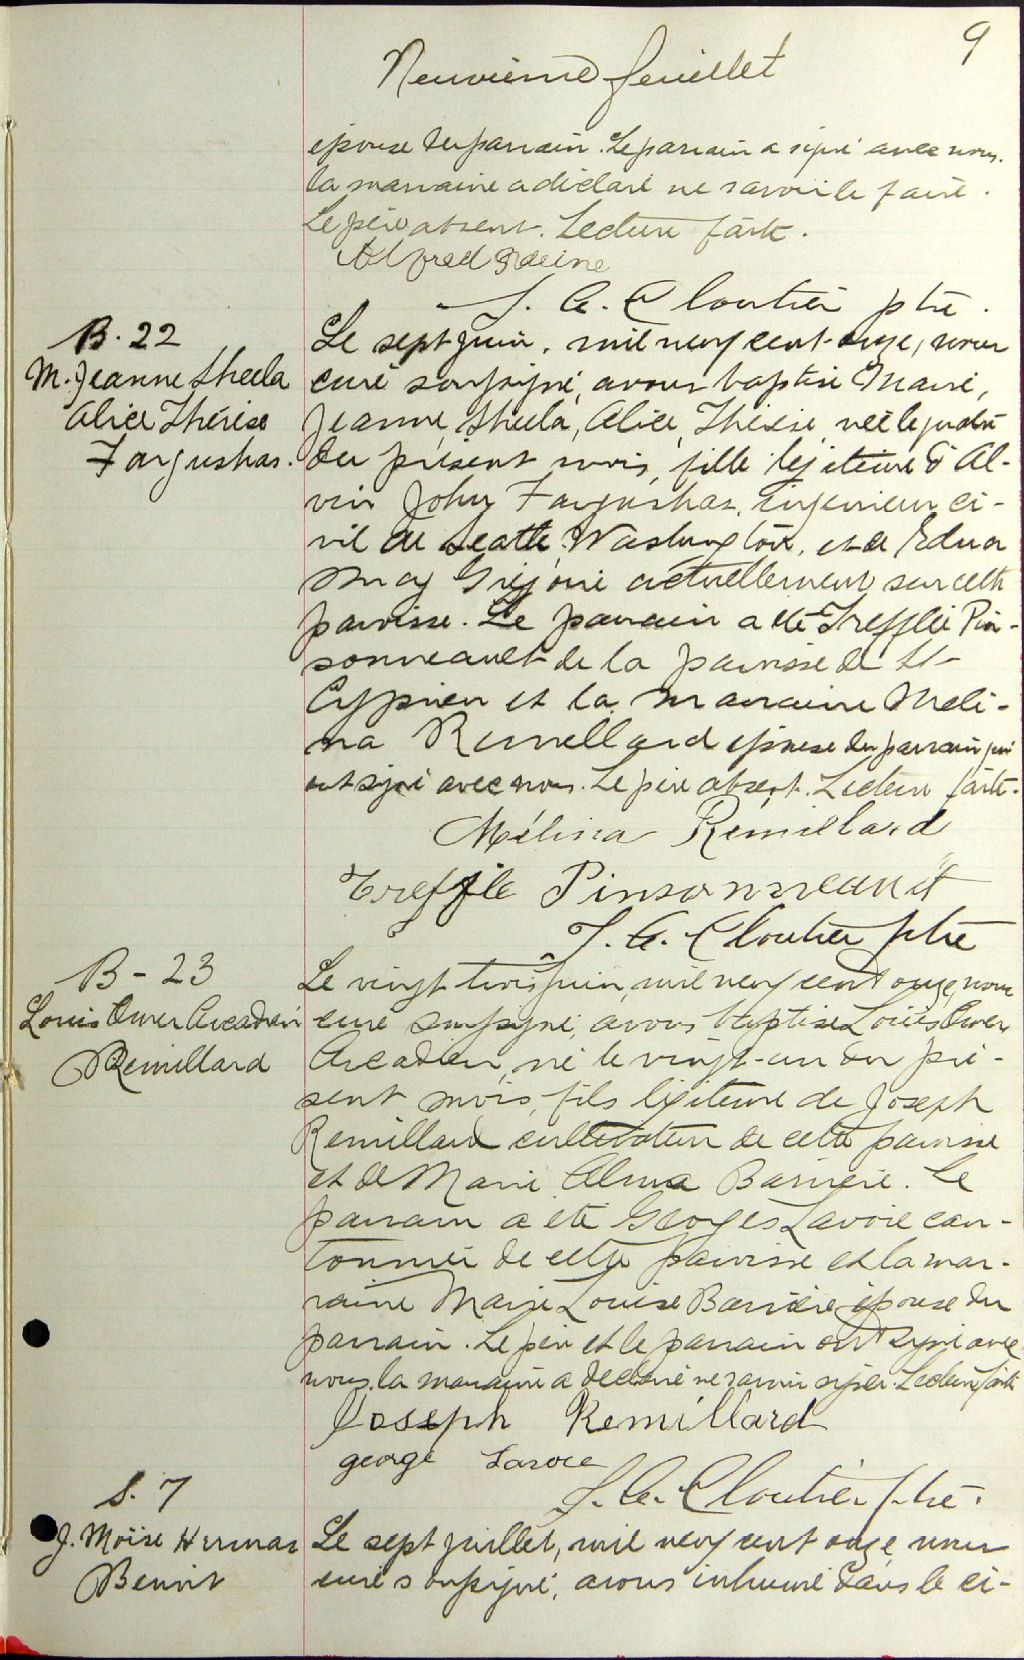 9
Neuvième feuillet
épouse du parrain. Le parrain a signé avec nous.
la marraine a déclaré ne savoir le faire.
Le père absent. Lecture faite.
Alfred
J. A. Cloutier ptre.
B. 22
M. Jeanne Sheela
Alice Thérèse
Fargushas.
Le sept juin, mil neuf cent onze, nous
curé soussigné, avons baptisé Marie,
Jeanne, Sheela, Alice, Thérèse, née le quatre
du présent mois, fille légitime d'Al-
vin John Fargushas, ingénieur ci-
vil de Seattle Washington, et de Edna
May Grégoire actuellement sur cette
paroisse. Le parrain a été Trefflée Pin-
sonneault de la paroisse de St-
Cyprien et la marraine Méli-
na Remillard épouse du parrain qui
ont signé avec nous. Le père absent. Lecture faite.
Mélina Rémillard
Treffle Pinsonneault
J. A. Cloutier ptre
B - 23
Louis Omer Arcadien
Remillard
Le vingt trois juin, mil neuf cent onze, nous
curé soussigné, avons baptisé Louis Omer
Arcadien, né le vingt-un du pré-
sent mois, fils légitime de Joseph
Remillard cultivateur de cette paroisse
et de Marie Alma Barrière. Le
parrain a été Georges Lavoie can-
tonnier de cette paroisse et la mar-
raine Marie Louise Barrière épouse du
parrain. Le père et le parrain ont signé avec
nous. la marraine a déclaré ne savoir signer. Lecture faite
Joseph Remillard
george Lavoie
J. A. Cloutier ptre.
S. 7
J. Moïse Hermas
Benoit
Le sept juillet, mil neuf cent onze nous
curé soussigné, avons inhumé dans le ci-